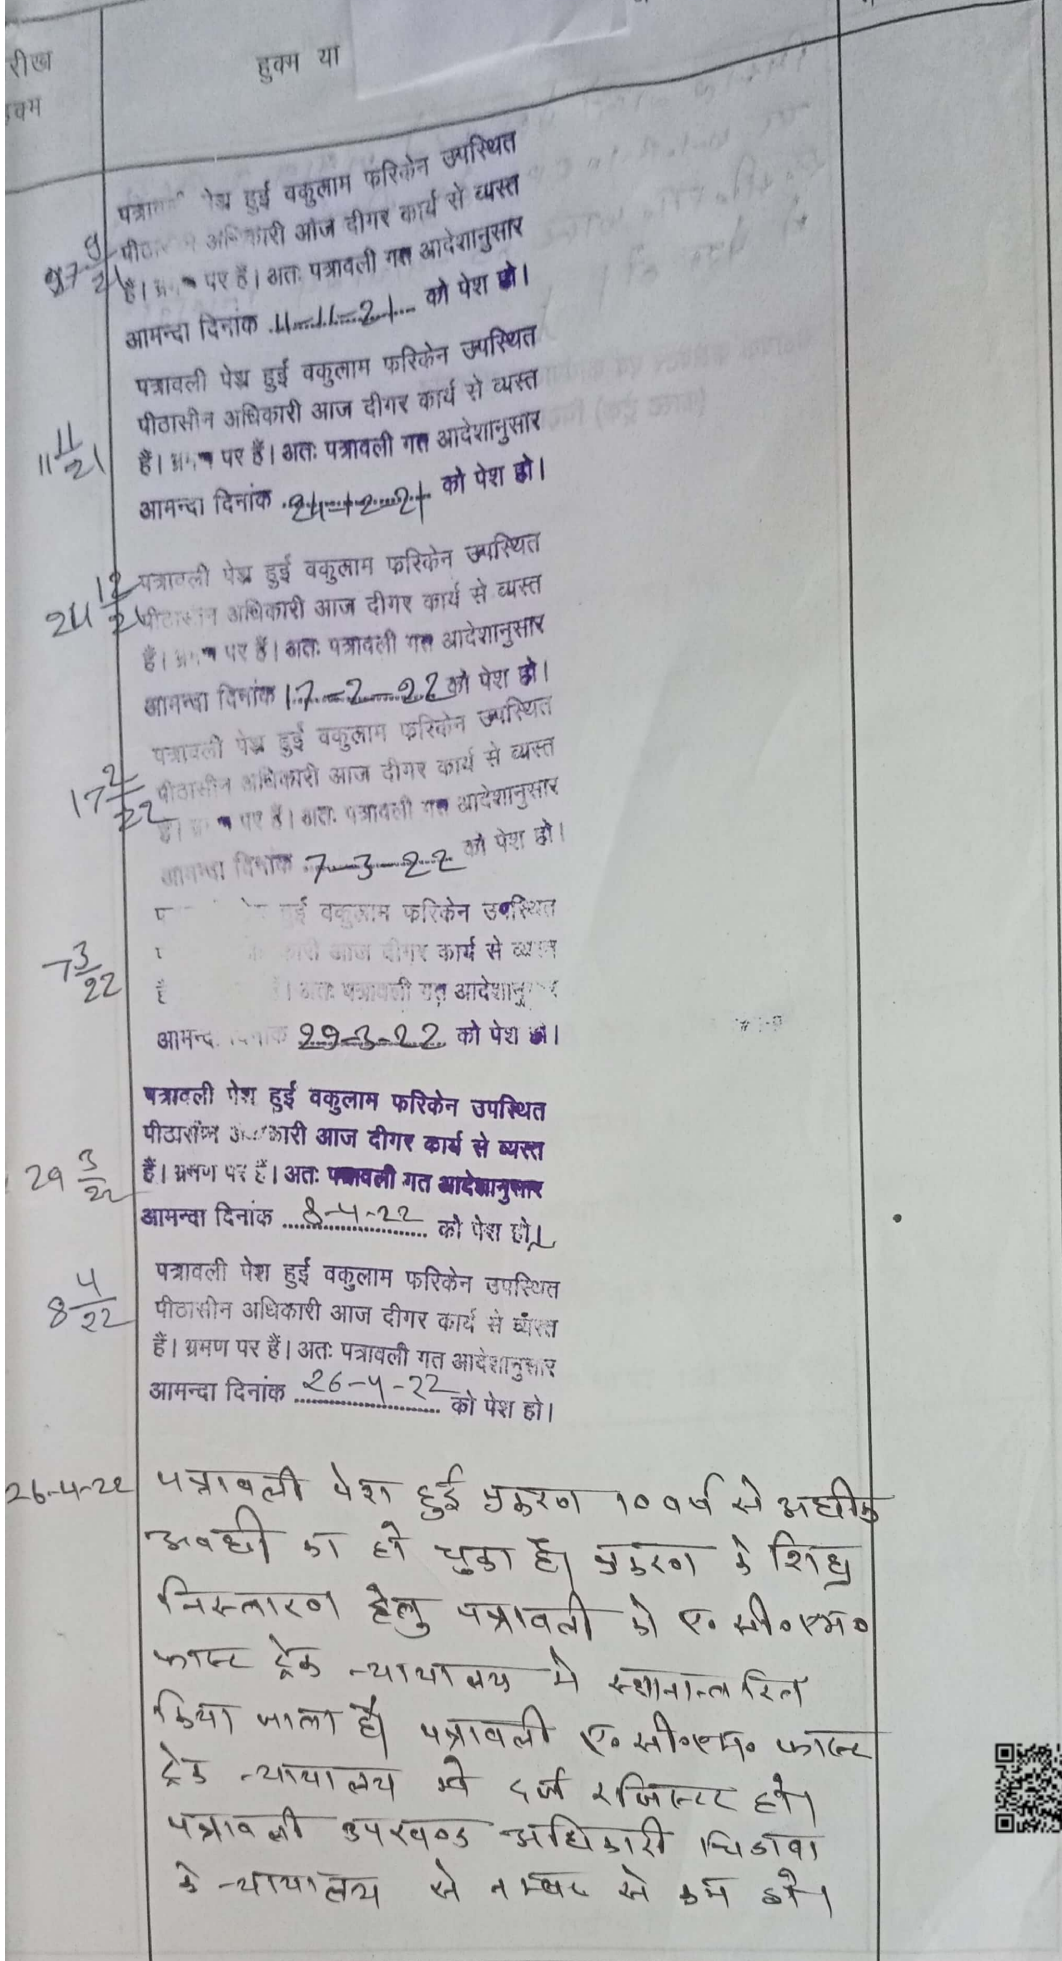 रीख
हुक्म या
क्म
हुई वकुलाम फरिकेन उपस्थित
आज दीगर कार्य से व्यस्त
9
27 21
हैं। पर हैं। अतः पत्रावली गत आदेशानुसार
आमन्दा दिनांक 11-11-21 को पेश हो।
पत्रावली पेश हुई वकुलाम फरिकेन उपस्थित
पीठासीन अधिकारी आज दीगर कार्य से व्यस्त
11
11 21
हैं। पर हैं। अतः पत्रावली गत आदेशानुसार
आमन्दा दिनांक 24-12-21 को पेश हो।
पत्रावली पेश हुई वकुलाम फरिकेन उपस्थित
12
24 21
अधिकारी आज दीगर कार्य से व्यस्त
हैं। पर हैं। अतः पत्रावली गत आदेशानुसार
आमन्दा दिनांक 17-2-22 को पेश हो।
पत्रावली पेश हुई वकुलाम फरिकेन उपस्थित
2
17 22
पीठासीन अधिकारी आज दीगर कार्य से व्यस्त
पर हैं। अतः पत्रावली गत आदेशानुसार
आमन्दा दिनांक 7-3-22 को पेश हो।
हुई वकुलाम फरिकेन उपस्थित
3
7 22
आज दीगर कार्य से व्यस्त
है । अतः पत्रावली गत
29-3-22 को पेश हो।
पत्रावली पेश हुई वकुलाम फरिकेन उपस्थित
पीठासीन आज दीगर कार्य से व्यस्त
3
29 22
हैं। भ्रमण पर हैं। अतः पत्रावली गत आदेशानुसार
आमन्दा दिनांक 8-4-22 को पेश हो।
पत्रावली पेश हुई वकुलाम फरिकेन उपस्थित
4
8 22
पीठासीन अधिकारी आज दीगर कार्य से व्यस्त
हैं। भ्रमण पर हैं। अतः पत्रावली गत आदेशानुसार
आमन्दा दिनांक 26-4-22 को पेश हो।
26-4-22 पत्रावली पेश हुई प्रकरण 10 वर्ष से अधीक
अवधी का हो चुका है। प्रकरण के शिघ्र
निस्तारण हेतु पत्रावली को ए० सी०एम०
फास्ट ट्रेक न्यायालय मे स्थानान्तरित
किया जाता है। पत्रावली ए० सी०एम० फास्ट
ट्रेक न्यायालय मे दर्ज रजिस्टर हो।
पत्रावली उपखण्ड अधिकारी चिडावा
के न्यायालय से नम्बर से कम हो।